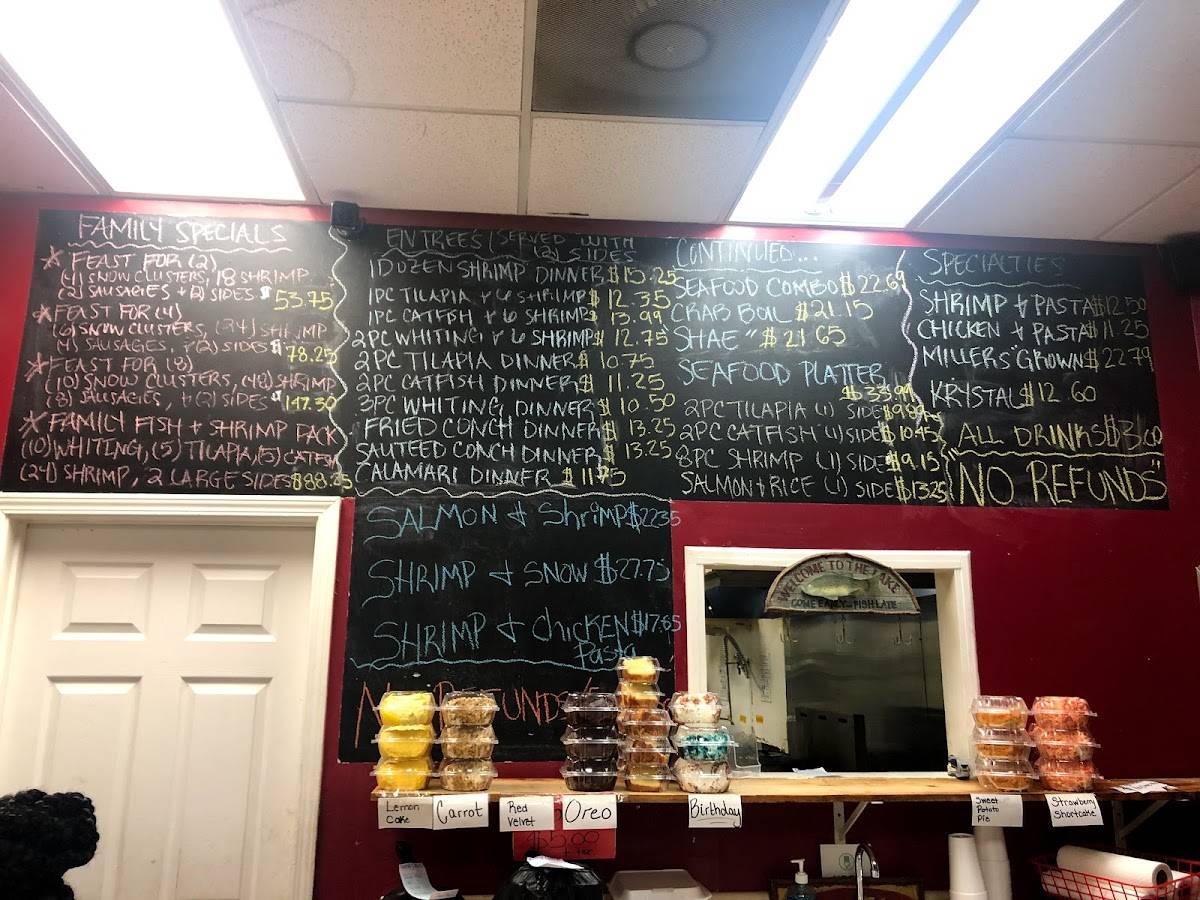 FAMILY SPECIALS
* FEAST FOR (2)
(4) SNOW CLUSTERS, 18 SHRIMP
(2) SAUSAGES + (2) SIDES $53.75
* FEAST FOR (4)
(6) SNOW CLUSTERS, (24) SHRIMP
(4) SAUSAGES, + (2) SIDES $78.25
* FEAST FOR (8)
(10) SNOW CLUSTERS, (48) SHRIMP
(8) SAUSAGES, + (2) SIDES $147.30
* FAMILY FISH + SHRIMP PACK
(10) WHITING, (5) TILAPIA, (5) CATFISH
(24) SHRIMP, 2 LARGE SIDES $88.25
ENTREES (SERVED WITH
(2) SIDES
1 DOZEN SHRIMP DINNER $15.25
1PC TILAPIA + 6 SHRIMP $12.35
1PC CATFISH + 6 SHRIMP $13.99
2PC WHITING + 6 SHRIMP $12.75
2PC TILAPIA DINNER $10.75
2PC CATFISH DINNER $11.25
3PC WHITING DINNER $10.50
FRIED CONCH DINNER $13.25
SAUTEED CONCH DINNER $13.25
CALAMARI DINNER $11.75
CONTINUED...
SEAFOOD COMBO $22.69
CRAB BOIL $21.15
SHAE" $21.65
SEAFOOD PLATTER
$33.99
2PC TILAPIA (1) SIDE $9.89
2PC CATFISH (1) SIDE $10.45
8PC SHRIMP (1) SIDE $9.15
SALMON + RICE (1) SIDE $13.25
SPECIALTIES
SHRIMP + PASTA $12.50
CHICKEN + PASTA $11.25
MILLERS "GROWN $22.79
KRISTAL $12.60
ALL DRINKS $3.00
"NO REFUNDS"
SALMON + ShriMP $22.35
SHRIMP + SNOW $27.75
SHRIMP + ChicKEN $17.65
Pasta
WELCOME TO THE LAKE
COME EARLY - FISH LATE
Lemon
Cake
Carrot
Red
Velvet
Oreo
$5.00
Birthday
Sweet
Potato
Pie
Strawberry
Shortcake